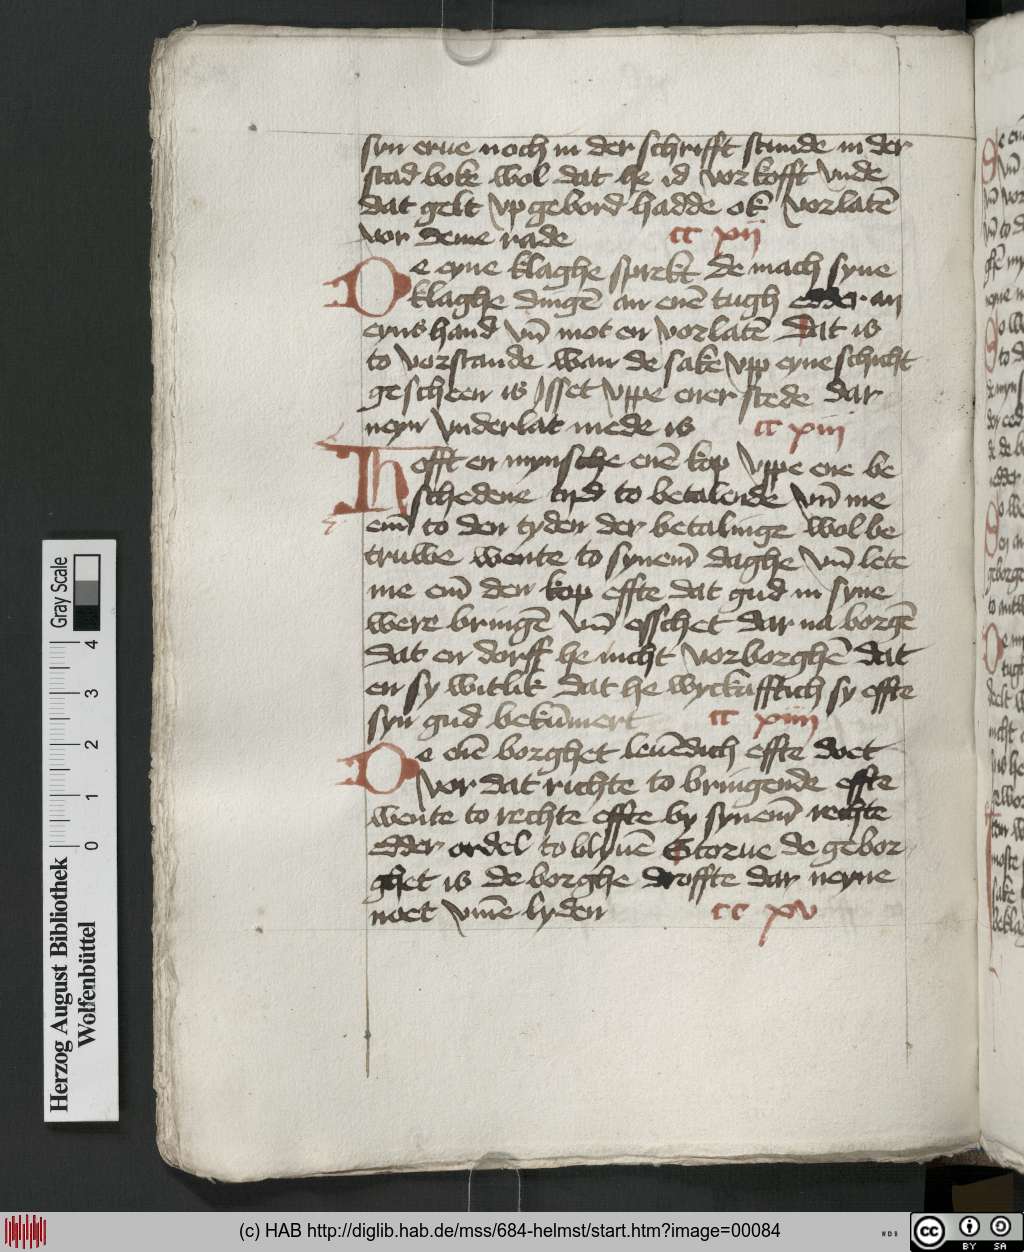 syn erue noch in der schrifft stunde in der
stad boke wol dat he id vorkofft vnde
dat gelt vpgebord hadde ok vorlatē
vor deme rade cc xii
De eyne klaghe sprekt de mach syne
klaghe dingē an enē tugh edder an
eyns hand vn̄ mot en vorlatē dat is
to vorstande wan de sake vpp eyne schicht
gescheen is Isset vppe ener stede dar
neyn vnderlat mede is cc xiii
Hefft en mynsche enē kop vppe ene be
schedene tyd to betalende vn̄ me
em̄ to den tyden der betalinge wol be
truwe wente to synem̄ daghe vn̄ lete
me em̄ den kop effte dat gud in syne
were bringē vn̄ esschet dar na borgē
dat en dorff he nicht vorborghē dat
en sy witlik dat he wyckafftich sy effte
syn gud bekūmert cc xiiii
De enē borghet leuēdich effte doet
vor dat richte to bringende effte
wente to rechte effte by synem̄ rechte
edder ordel to blyuē Storue de gebor
ghet is de borghe droffte dar neyne
noet vm̄e lyden cc xv
Herzog August Bibliothek
Wolfenbüttel
0 1 2 3 4
Gray Scale
(c) HAB http://diglib.hab.de/mss/684-helmst/start.htm?image=00084
WDB
cc BY SA